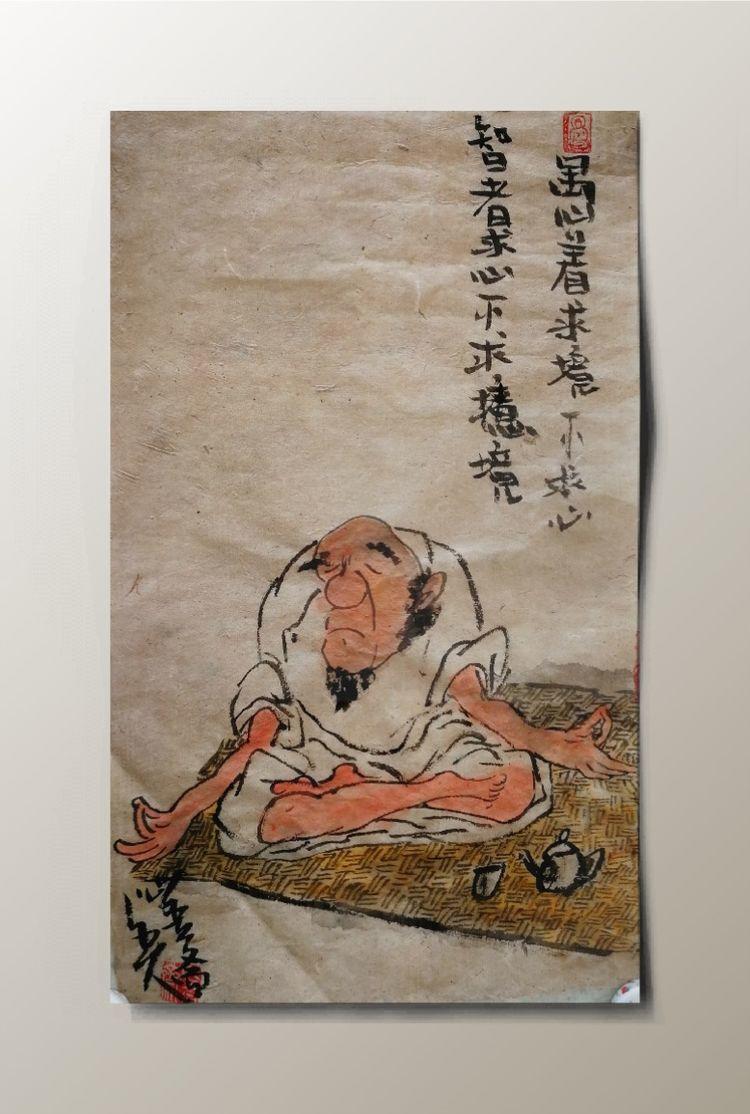 愚着求境不求心
智者求心不求境